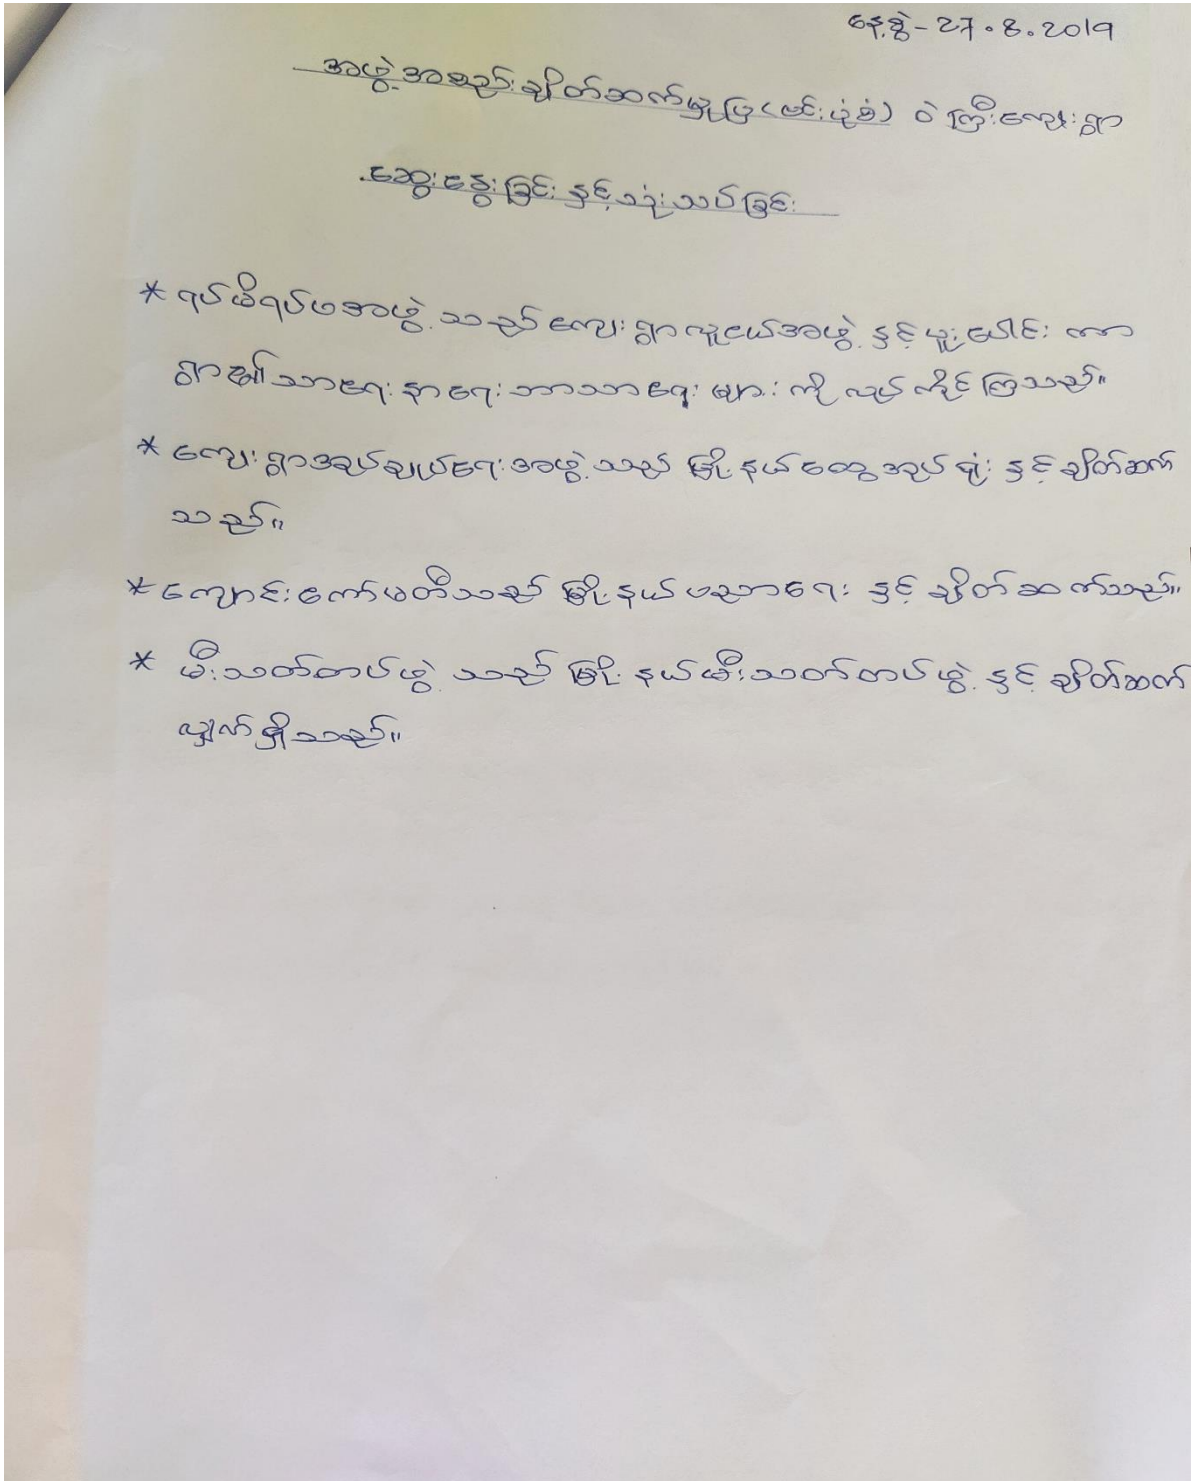 နေ့စွဲ - 27.8.2019
အဖွဲ့အစည်းချိတ်ဆက်မှုပြ (ဗင်းပုံစံ) ဝဲကြီးကျေးရွာ
ဆွေးနွေးခြင်း နှင့် သုံးသပ်ခြင်း
* ရပ်မိရပ်ဖအဖွဲ့ သည် ကျေးရွာလူငယ်အဖွဲ့ နှင့် ပူးပေါင်း ကာ
ရွာ၏ သာရေး နာရေး ဘာသာရေး များ ကို လုပ် ကိုင် ကြသည်။
* ကျေးရွာအုပ်ချုပ်ရေးအဖွဲ့ သည် မြို့နယ် ထွေအုပ် ရုံး နှင့် ချိတ်ဆက်
သည်။
* ကျောင်းကော်မတီသည် မြို့နယ် ပညာရေး နှင့် ချိတ် ဆက်သည်။
* မီးသတ်တပ်ဖွဲ့ သည် မြို့နယ်မီးသတ်တပ်ဖွဲ့ နှင့် ချိတ်ဆက်
လျှက် ရှိသည်။